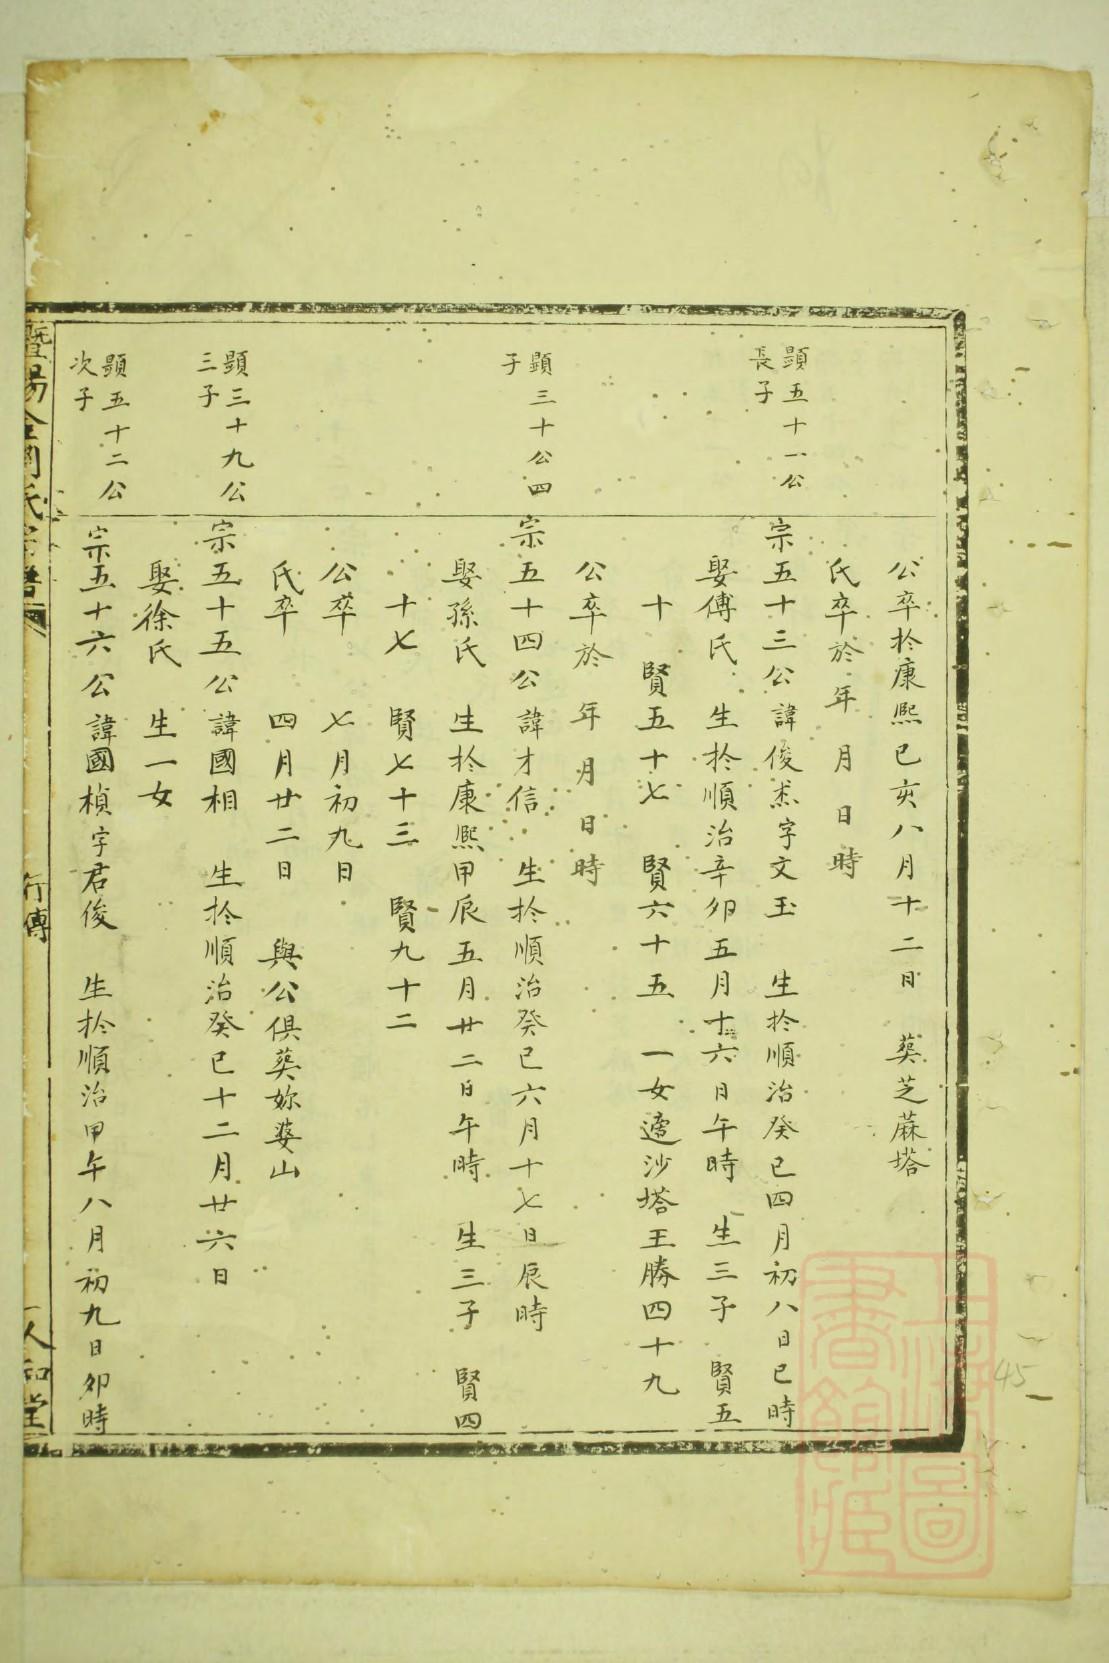 公卒於康熙己亥八月十二日 葬芝蔴塔
氏卒於年 月 日時
顕五十一公
長子
宗五十三公諱俊杰字文玉 生於順治癸巳四月初八日巳時
娶傅氏 生於順治辛卯五月十六日午時 生三子 賢五
十 賢五十七 賢六十五 一女適沙塔王勝四十九
公卒於 年 月 日時
顕三十公四
子
宗五十四公諱才信 生於順治癸巳六月十七日辰時
娶孫氏 生於康熙甲辰五月廿二日午時 生三子 賢四
十七 賢七十三 賢九十二
公卒 七月初九日
氏卒 四月廿二日 與公俱葬妳婆山
顕三十九公
三子
宗五十五公諱國相 生於順治癸巳十二月廿六日
娶徐氏 生一女
顕五十二公
次子
宗五十六公諱國楨字君俊 生於順治甲午八月初九日卯時
暨陽 周氏宗譜
行傳
人和堂
上海圖書館藏
45